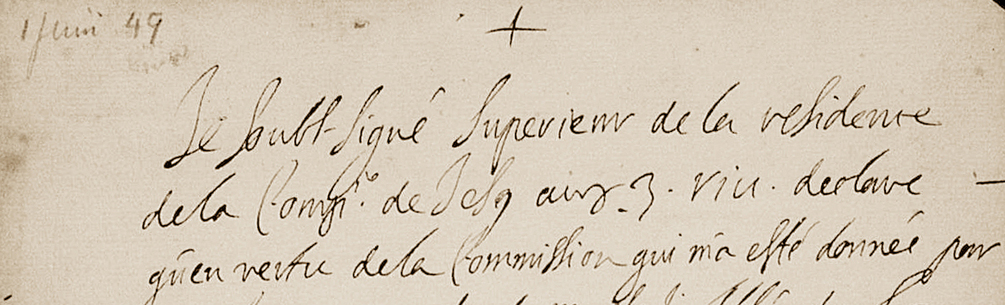 1 Juin 49
+
Je soubt-signé superieur de la residence
de la Compi.º de Jesq aux 3. riu. declare
qu'en vertu de la Commission qui m'a esté donnée par